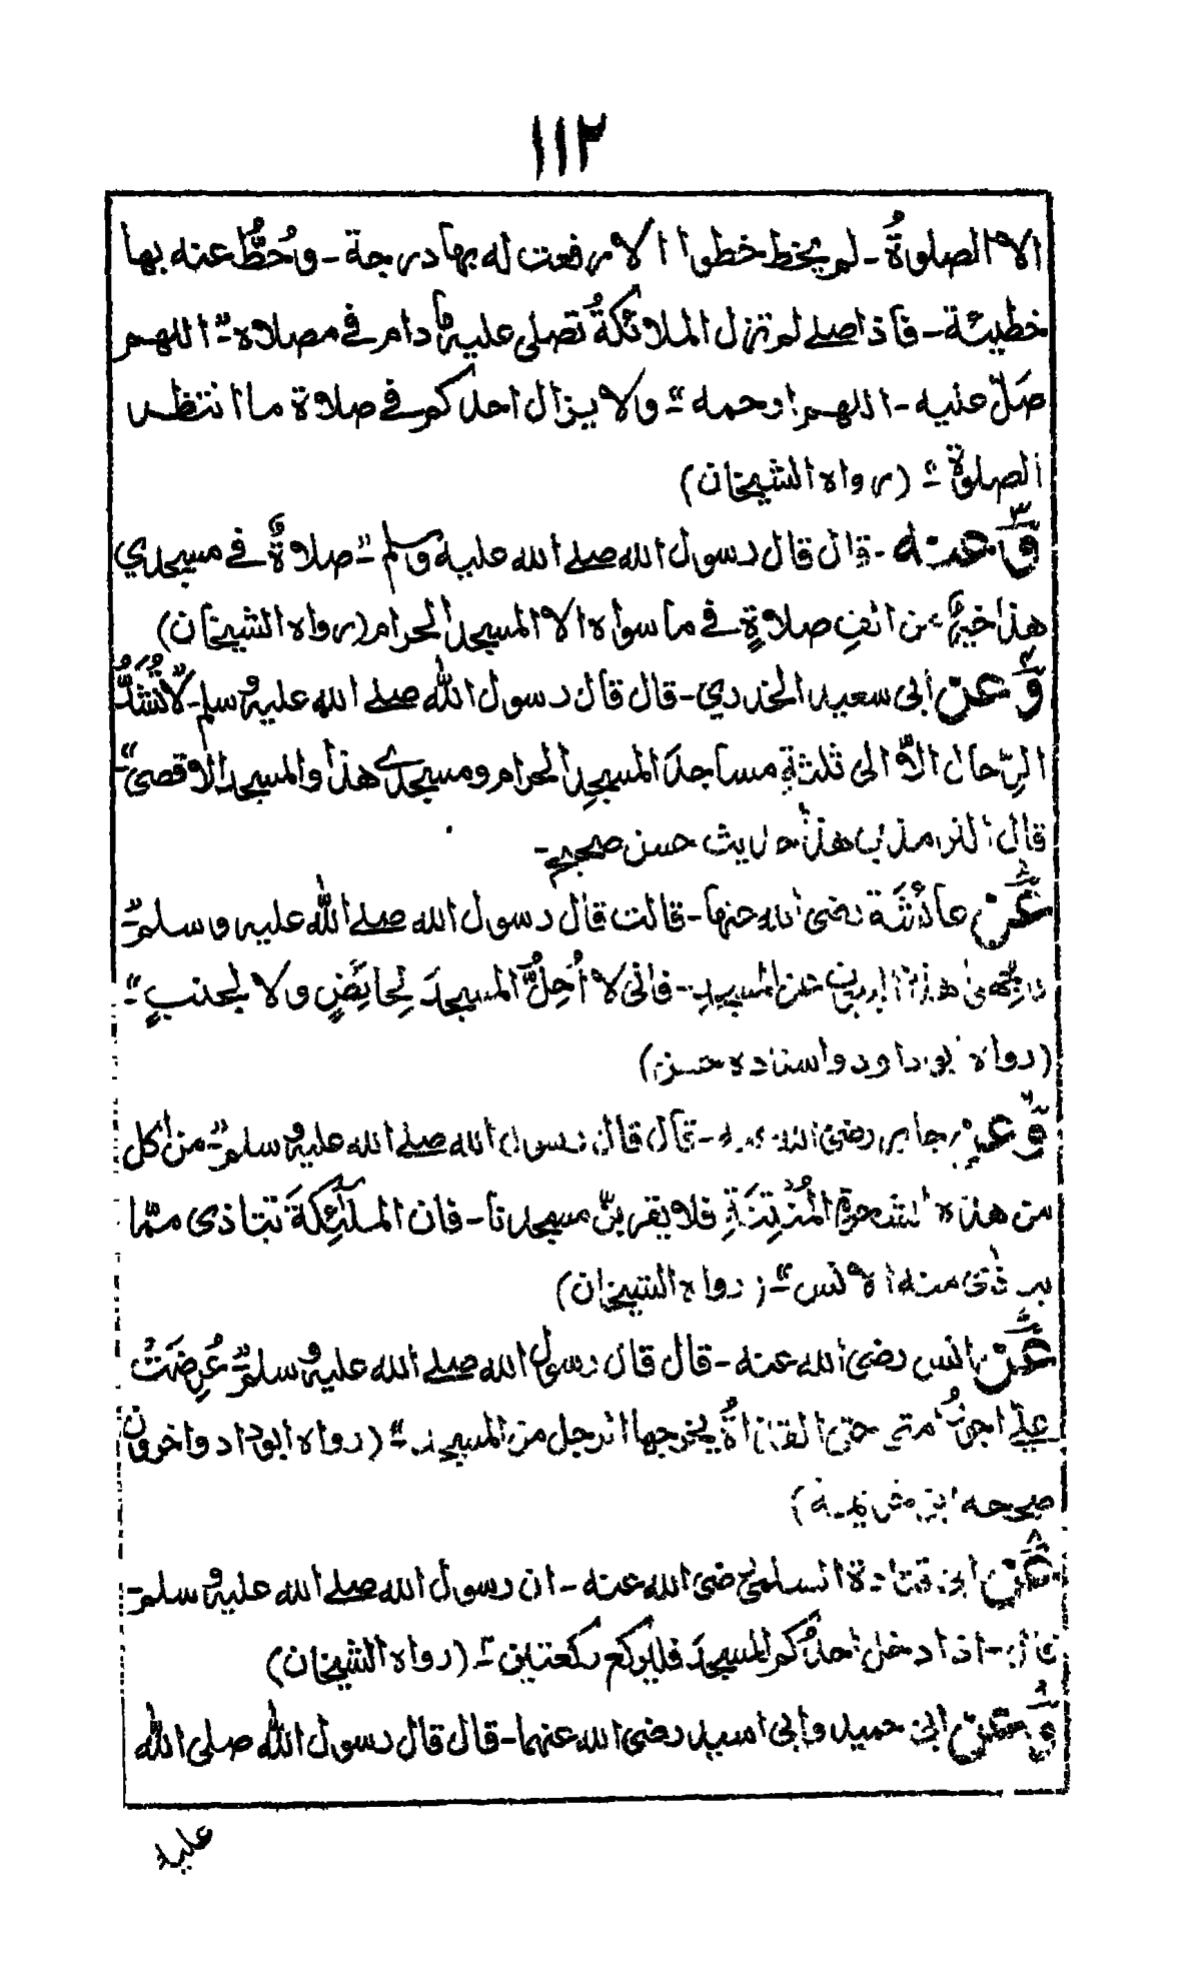 ١١٢
الا الصلوةُ - لم يخط خطوا الا رفعت له بها درجة - وحُطَّ عنه بها
خطيئة - فاذا صلے لم تزل الملائكةُ تصلى عليه ما دام في مصلاه " اللهم
صَلِّ عليه - اللهم ارحمه " ولا يزال احدكم في صلاة ما انتظر
الصلوة " (رواه الشيخان)
٣ وَعنه - قال قال رسول الله صلے الله عليه وسلم " صلاةٌ في مسجدي
هذا خيرٌ من الفِ صلاةٍ في ما سواه الا المسجد الحرام (رواه الشيخان)
٤ وَعن ابى سعيد الخدري - قال قال رسول الله صلے الله عليه وسلم - لَا تُشَدُّ
الرِّحال الَّا الى ثلثةِ مساجدَ المسجدِ الحرام ومسجدے هذا والمسجد الاقصىٰ "
قال الترمذى هذا حديث حسن صحيح -
عَنْ عائشَة رضى الله عنها - قالت قال رسول الله صلے الله عليه وسلم "
وجّهوا هذه البيوت عن المسجدِ - فانى لا اُحِلُّ المسجدَ لِحائِضٍ ولا لجنبٍ "
(رواه ابو داود واسناده حسن)
وَعن جابر رضى الله عنه - قال قال رسول الله صلے الله عليه وسلم " من اكل
من هذه الشجرة المُنْتِنَةِ فلا يقربنّ مسجدنا - فان الملٰئِكةَ تتاذى ممّا
يتاذى منه الانس " (رواه الشيخان)
عَنْ انس رضى الله عنه - قال قال رسول الله صلے الله عليه وسلم " عُرِضَتْ
علےّ اجورُ امتى حتى القذاةُ يخرجها الرجل من المسجد " (رواه ابو داد واخرون
صححه ابن خزيمة)
٨ عَنْ ابى قتادة السلمى رضى الله عنه - ان رسول الله صلے الله عليه وسلم "
قال - اذا دخل احدُكم المسجدَ فليركع ركعتين " (رواه الشيخان)
وَعَن ابى حميد وابى اسيد رضى الله عنهما - قال قال رسول الله صلى الله
عليه